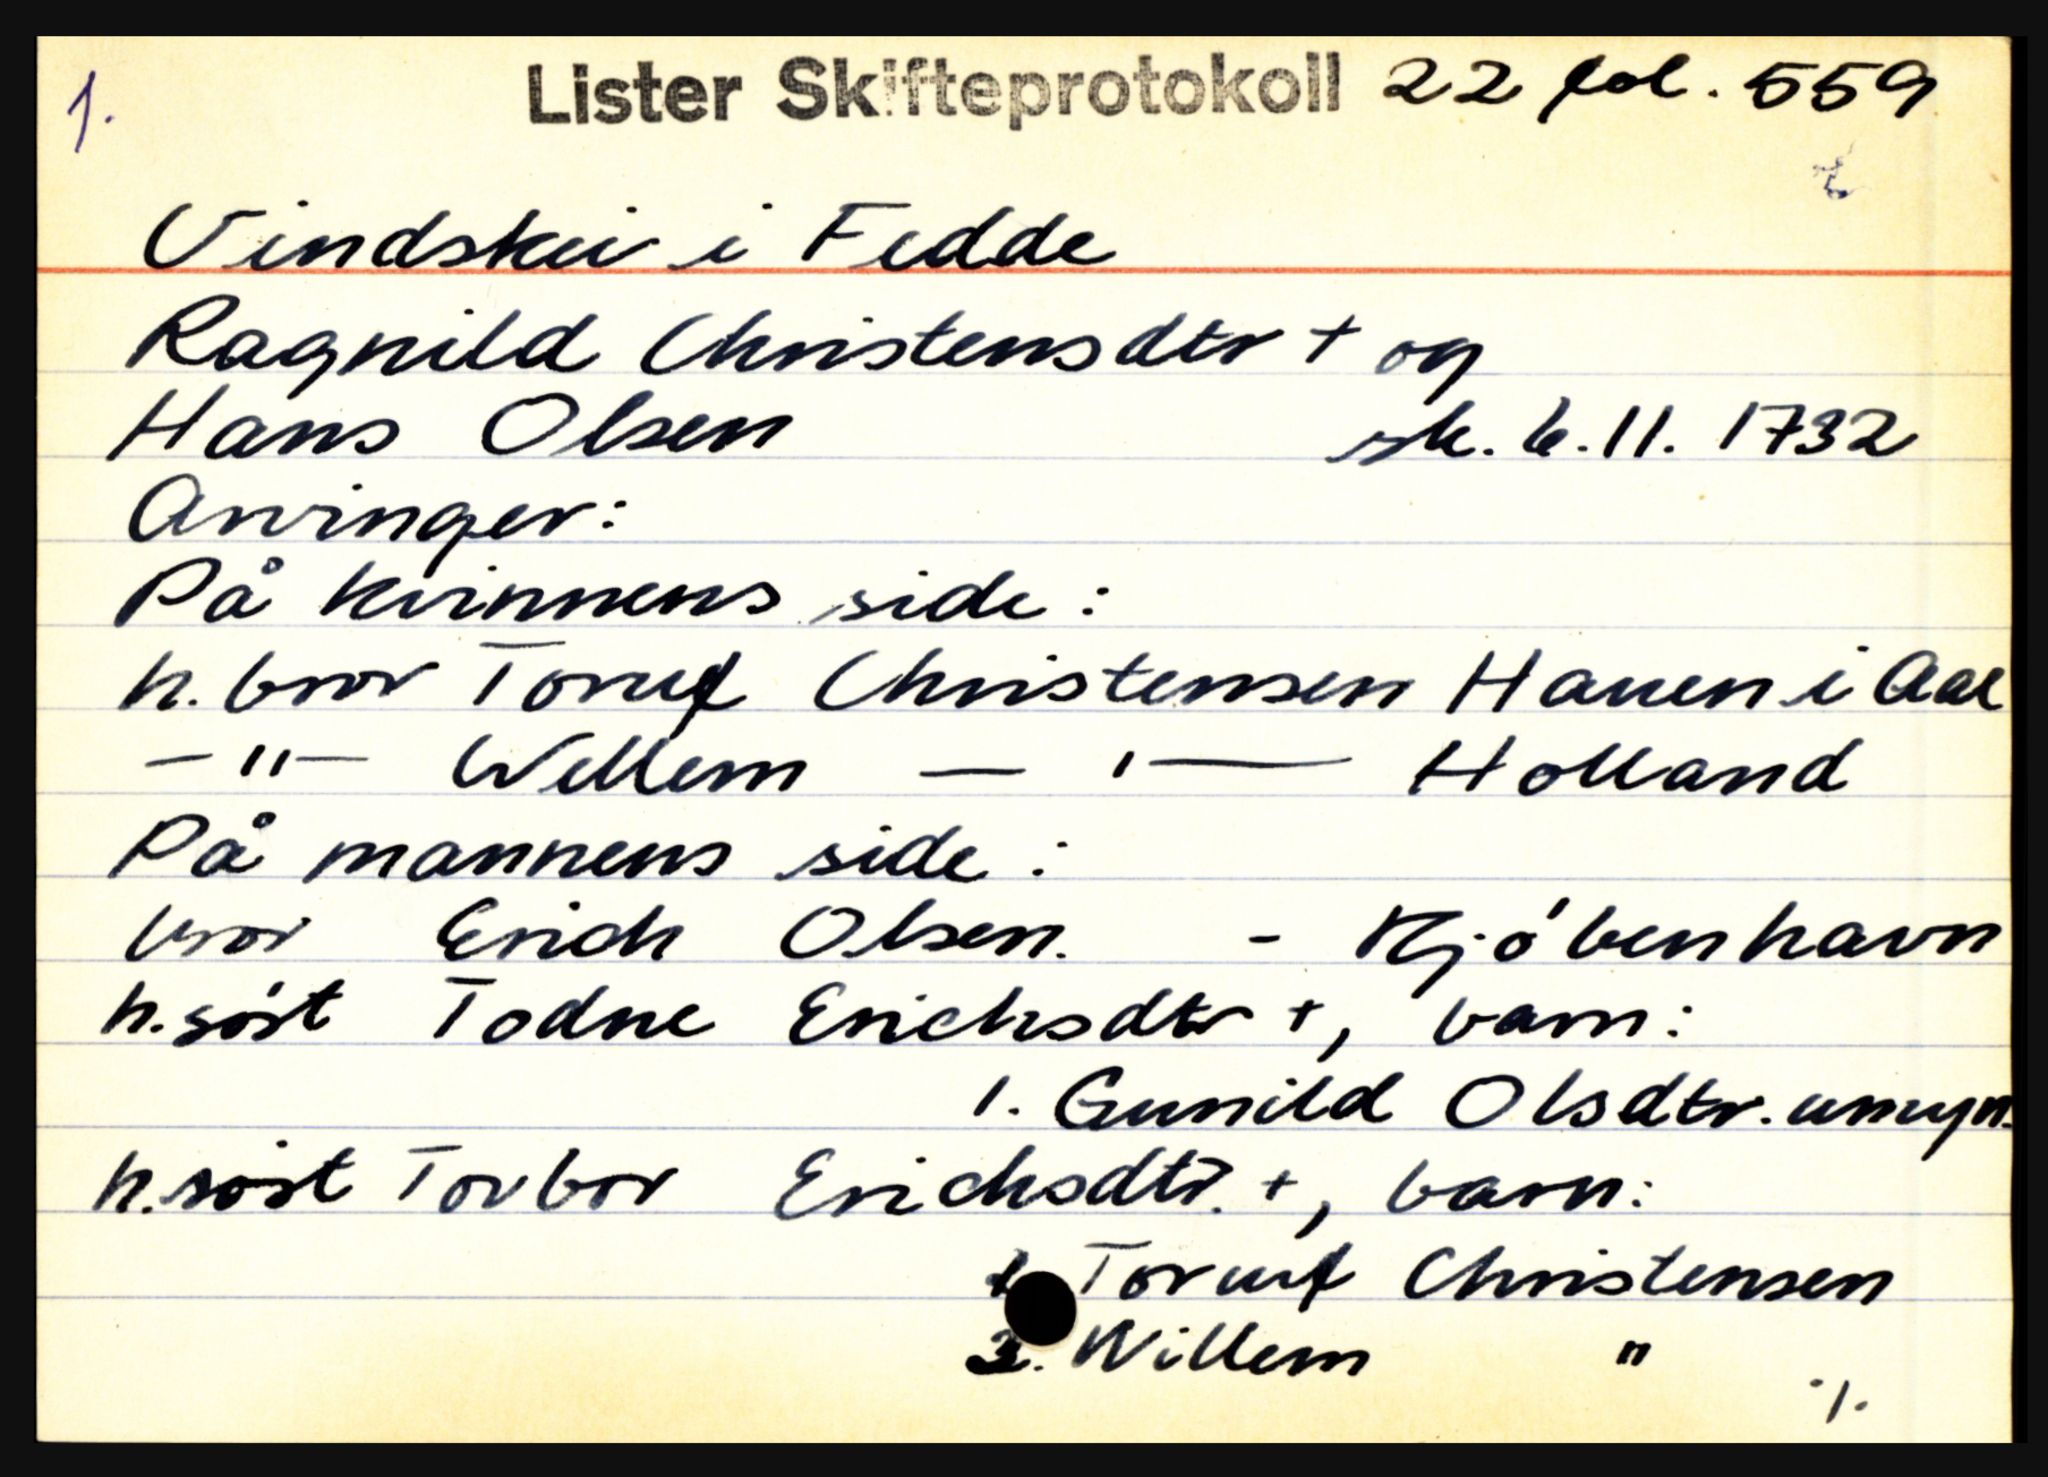 1. Lister Skifteprotokoll 22 fol. 559
Vindskei i Fedde
Ragnild Christensdtr + og
Hans Olsen sk. 6.11. 1732
Arvinger:
På kvinnens side:
h. bror Toruf Christensen Hauen i Aae
— " — Willem — " — Holland
På mannens side:
bror Erich Olsen. - Kjøbenhavn
h. søst Todne Erichsdtr +, barn:
1. Gunild Olsdtr. umyn.
h. søst Torbor Erichsdtr. +, barn:
1. Toruf Christensen
2. Willem "
./.